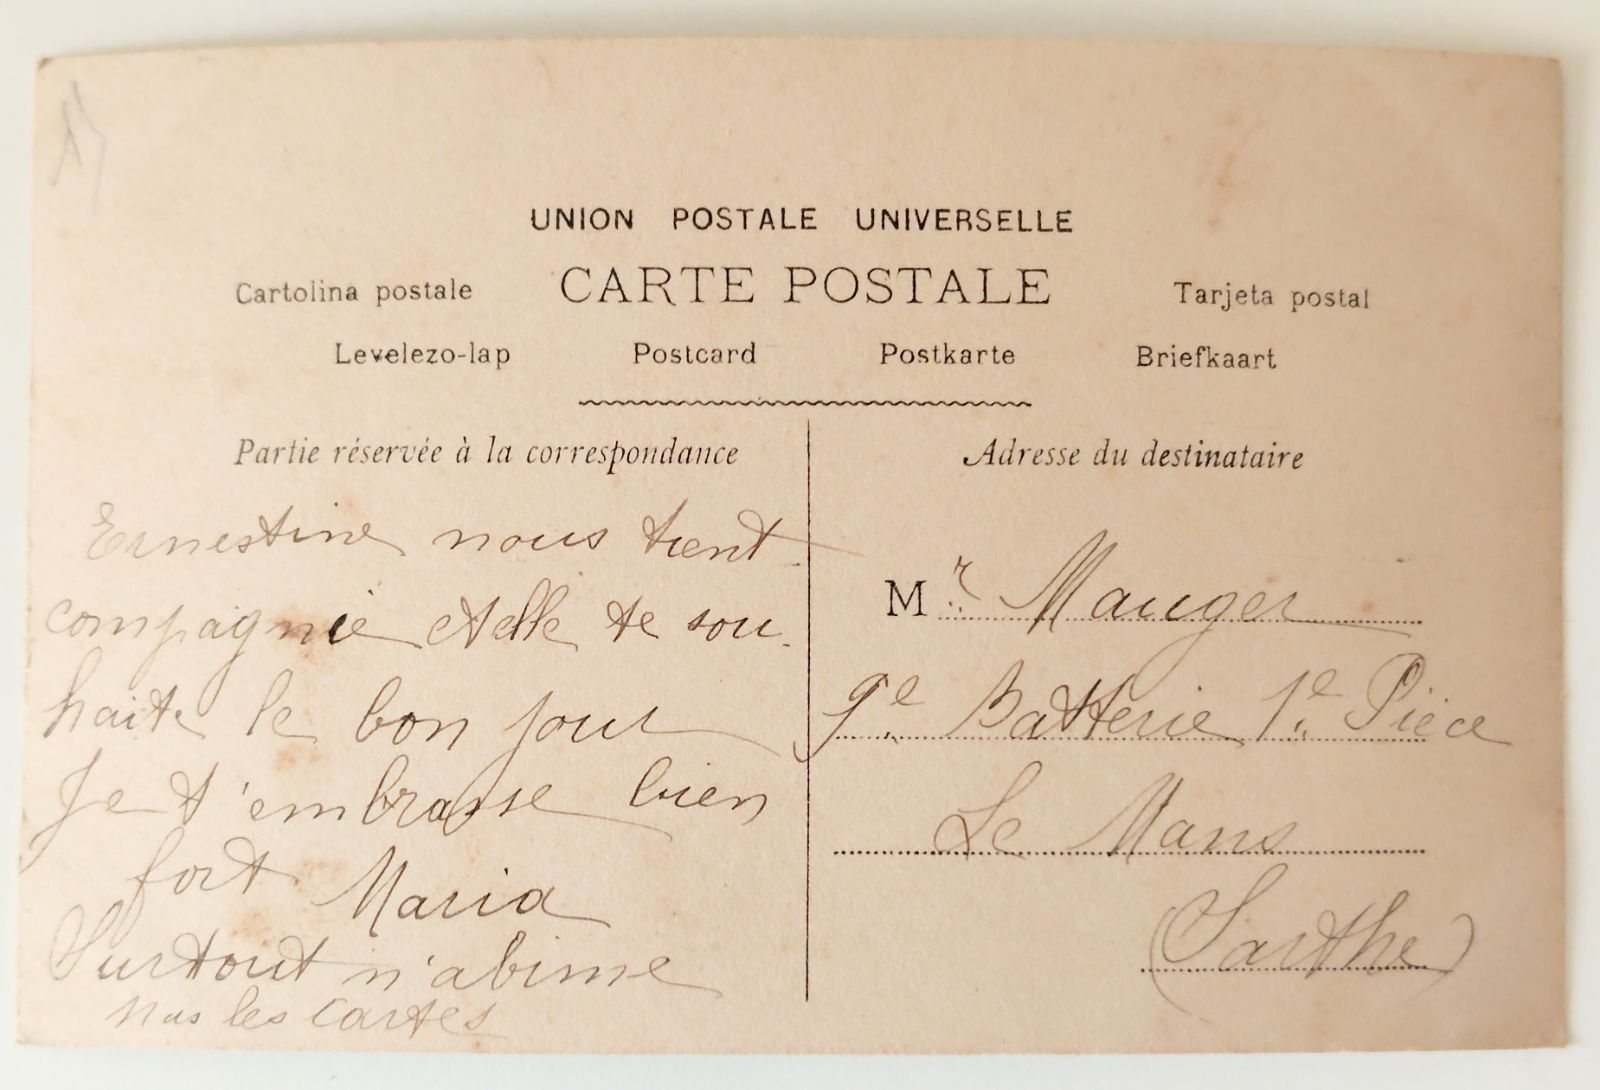 UNION POSTALE UNIVERSELLE
Cartolina postale CARTE POSTALE Tarjeta postal
Levelezo-lap Postcard Postkarte Briefkaart
Partie réservée à la correspondance
Ernestine nous tient
compagnie et elle te sou-
haite le bon jour
Je t'embrasse bien
fort Maria
Surtout n'abime
pas les cartes
Adresse du destinataire
Mr Mauger
9e Batterie 1e Pièce
Le Mans
(Sarthe)